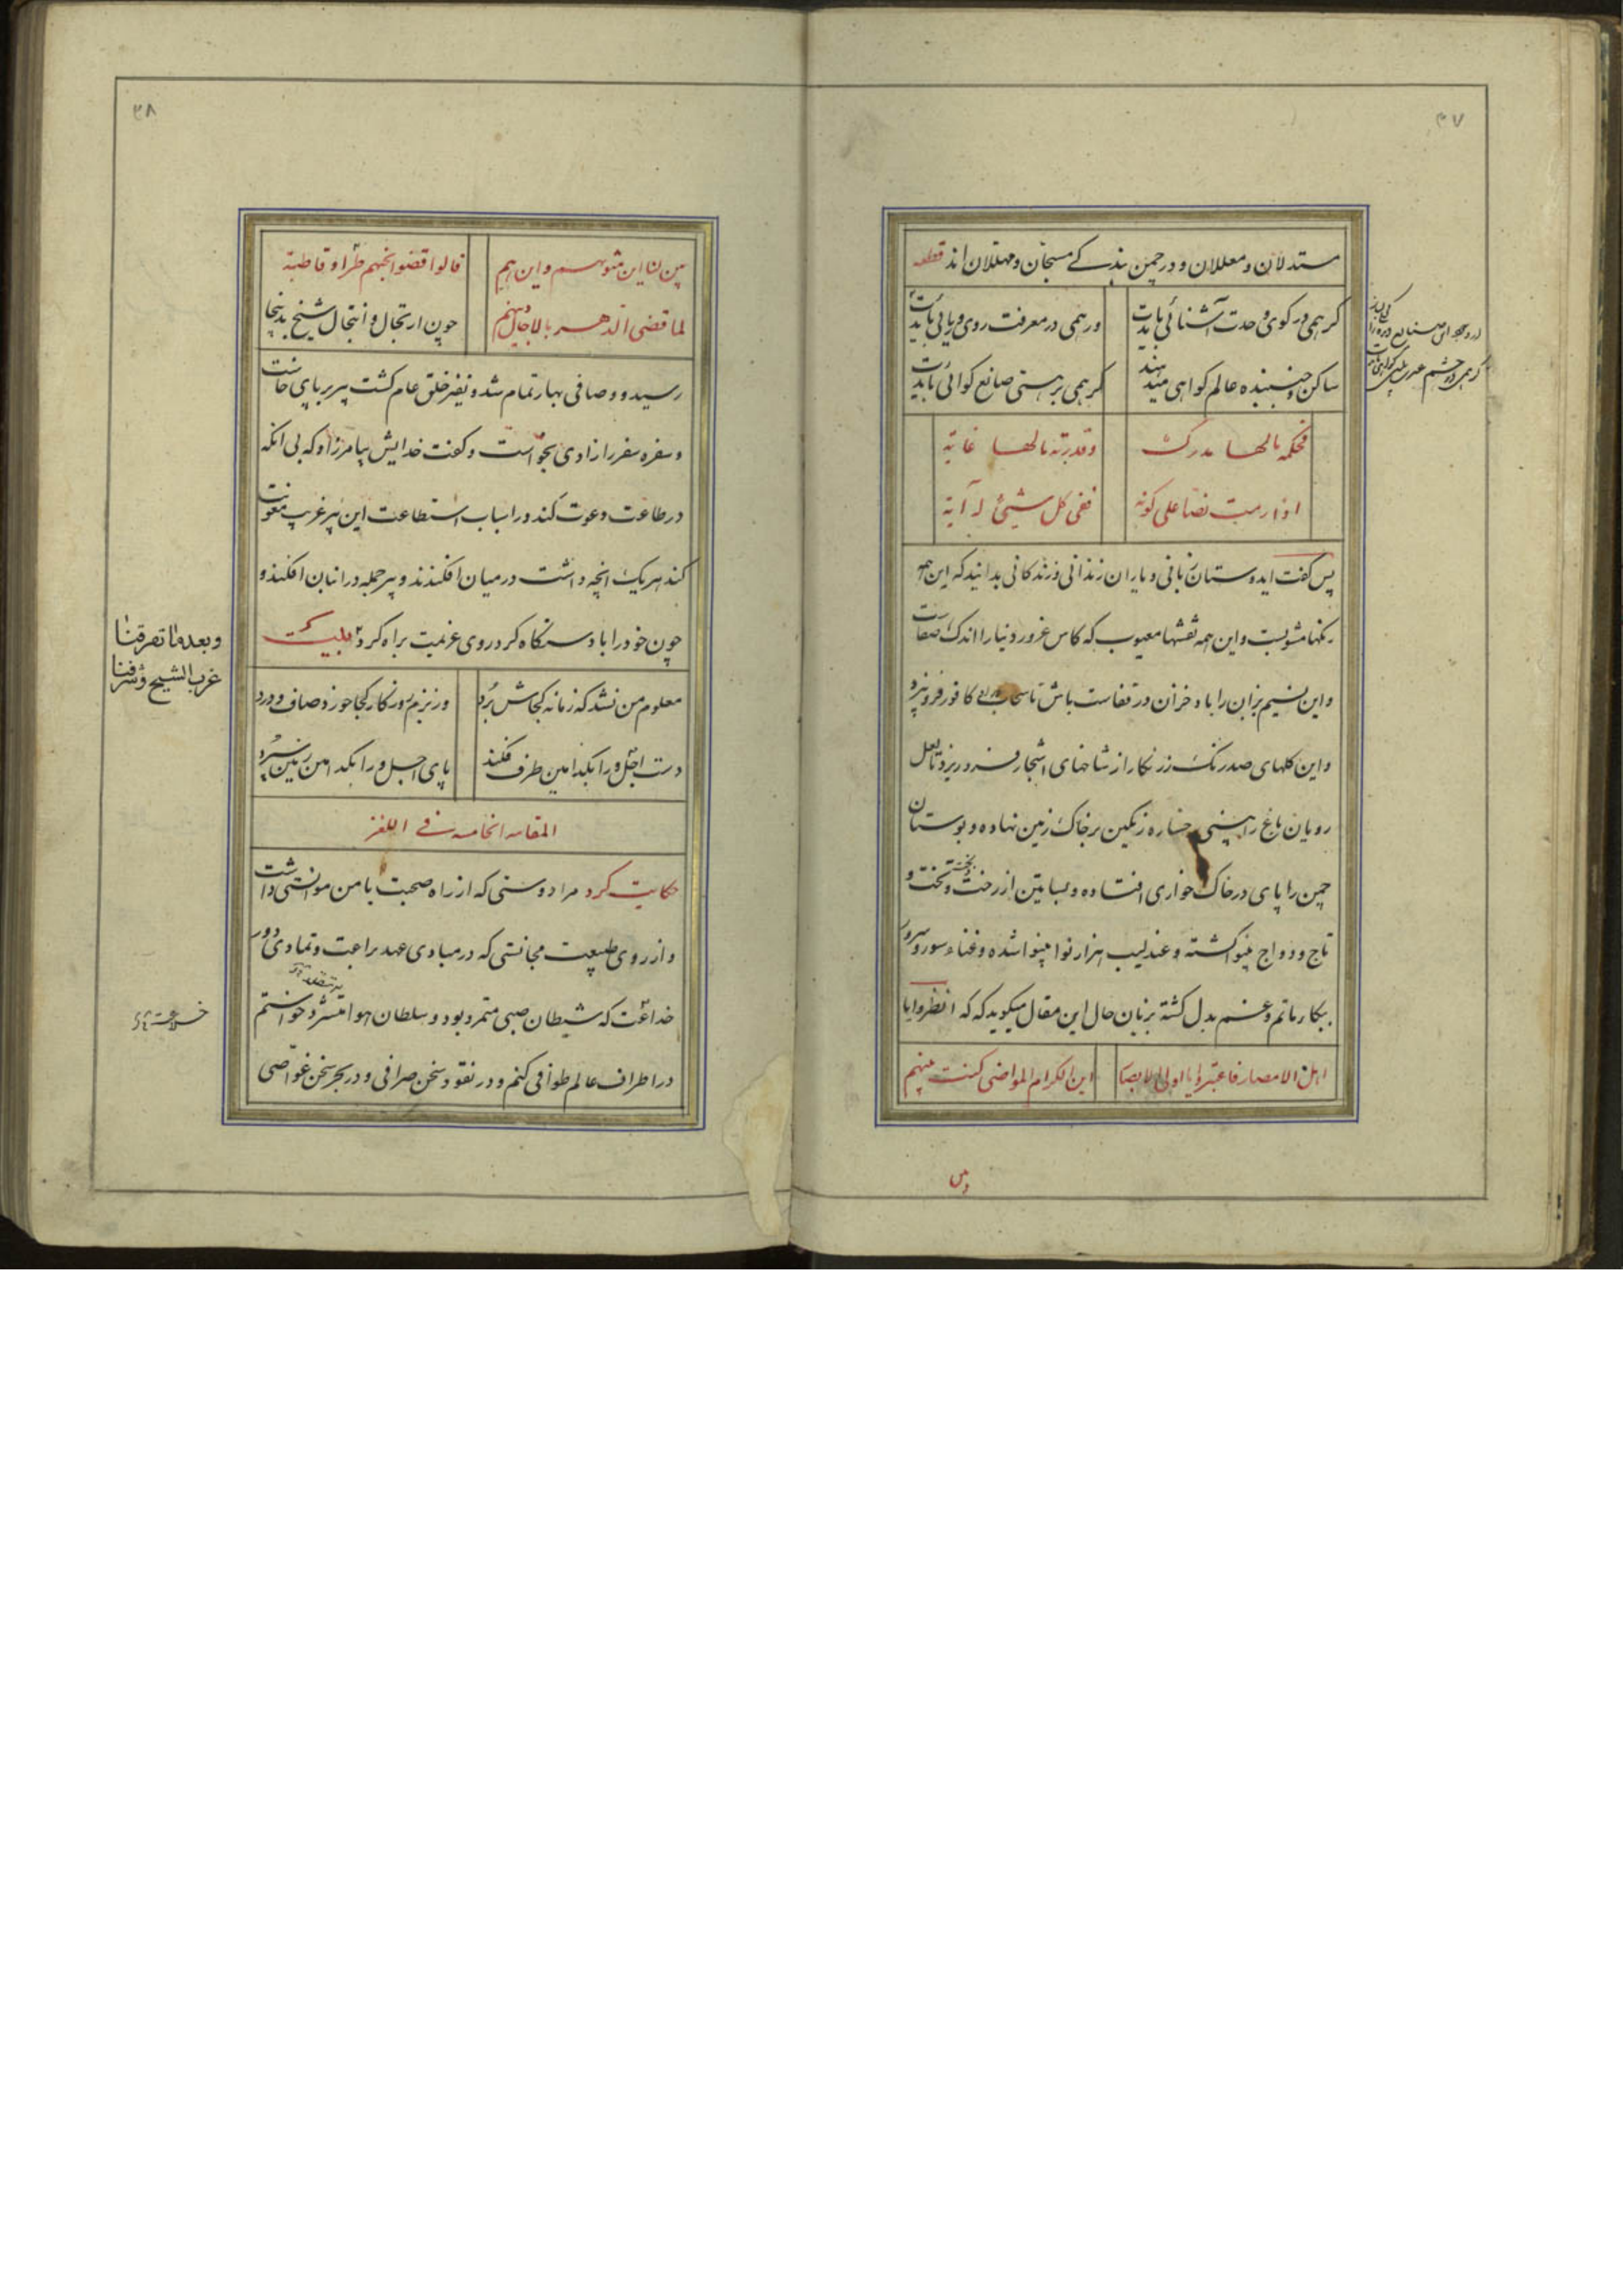 ۳۷
مستدلان و معللان و در چمن بندگی مسبحان و مهللان اند قطعه
گر همی در کوی وحدت آشنائی بایدت
ور همی در معرفت روی و ریائی بایدت
ساکن و جنبنده عالم گواهی میدهند
گر همی بر هستی صانع گوائی بایدت
فحکمه مالها مدرک
وقدرته مالها غایة
اذا رمت نصا علی کونه
ففی کل شیئ له آیة
پس گفت ایدوستان زبانی و یاران زندانی و زندکانی بدانید که این همه
رنگها مشوبست و این همه نقشها معیوب که کاس غرور دنیا را اندک صفاست
و این نسیم بزان را باد خزان در قفاست باش تا سحاب کافور فرو بیزد
و این گلهای صدرنگ زرنگار از شاخهای اشجار فرو ریزد تا لعل
رویان باغ را بینی رخساره رنگین بر خاک زمین نهاده و بوستان
چمن را پای در خاک خواری افتاده و بساتین از رخت و تخت و
تاج و دواج بینوا گشته و عندلیب هزار نوا بینوا شده و غناء سور و سرور
ببکار ماتم و غم بدل گشته بزبان حال این مقال میگوید که که انظروا یا
اهل الامصار فاعتبروا یا اولی الابصار
این الکرام المواضی کنت بینهم
۳۸
بین لنا این مثویهم و این هم
قالوا قضوا نحبهم طرا و قاطبة
لما قضی الدهر بالاجال دینهم
چون ارتجال و انتحال شیخ بدینجا
رسید و وصافی بهار تمام شد و نفیر خلق عام گشت پیر بر پای خاست
و سفره سفر را زادی بخواست و گفت خدایش بیامرزاد که بی انکه
در طاعت دعوت کند در اسباب استطاعت این پیر غریب معونت
کند هر یک انچه داشت در میان افکندند و پیر جمله در انبان افکند و
چون خود را با دستگاه کرد روی عزیمت براه کرد
معلوم من نشد که زمانه کجاش برد
وز بزم روزگار کجا خورد صاف و درد
دست اجل ورا بکدامین طرف فکند
پای اجل ورا بکدامین زمین سپرد
المقامه الخامسه فی اللغز
حکایت کرد مرا دوستی که از راه صحبت با من موانستی داشت
و از روی طبیعت مجانستی که در مبادی عهد براعت و تمادی دور
خداعت که شیطان صبی متمرد بود و سلطان هوا خواستم
در اطراف عالم طوافی کنم و در نقود سخن صرافی و در بحر سخن غواصی
وبعد ما تفرقنا
غرب الشیخ وشرقنا